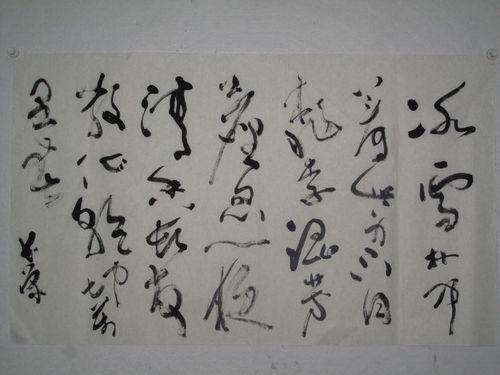 冰雪林中
著此身不同
桃李混芳
塵忽一夜
清香發
散作乾坤萬
里春